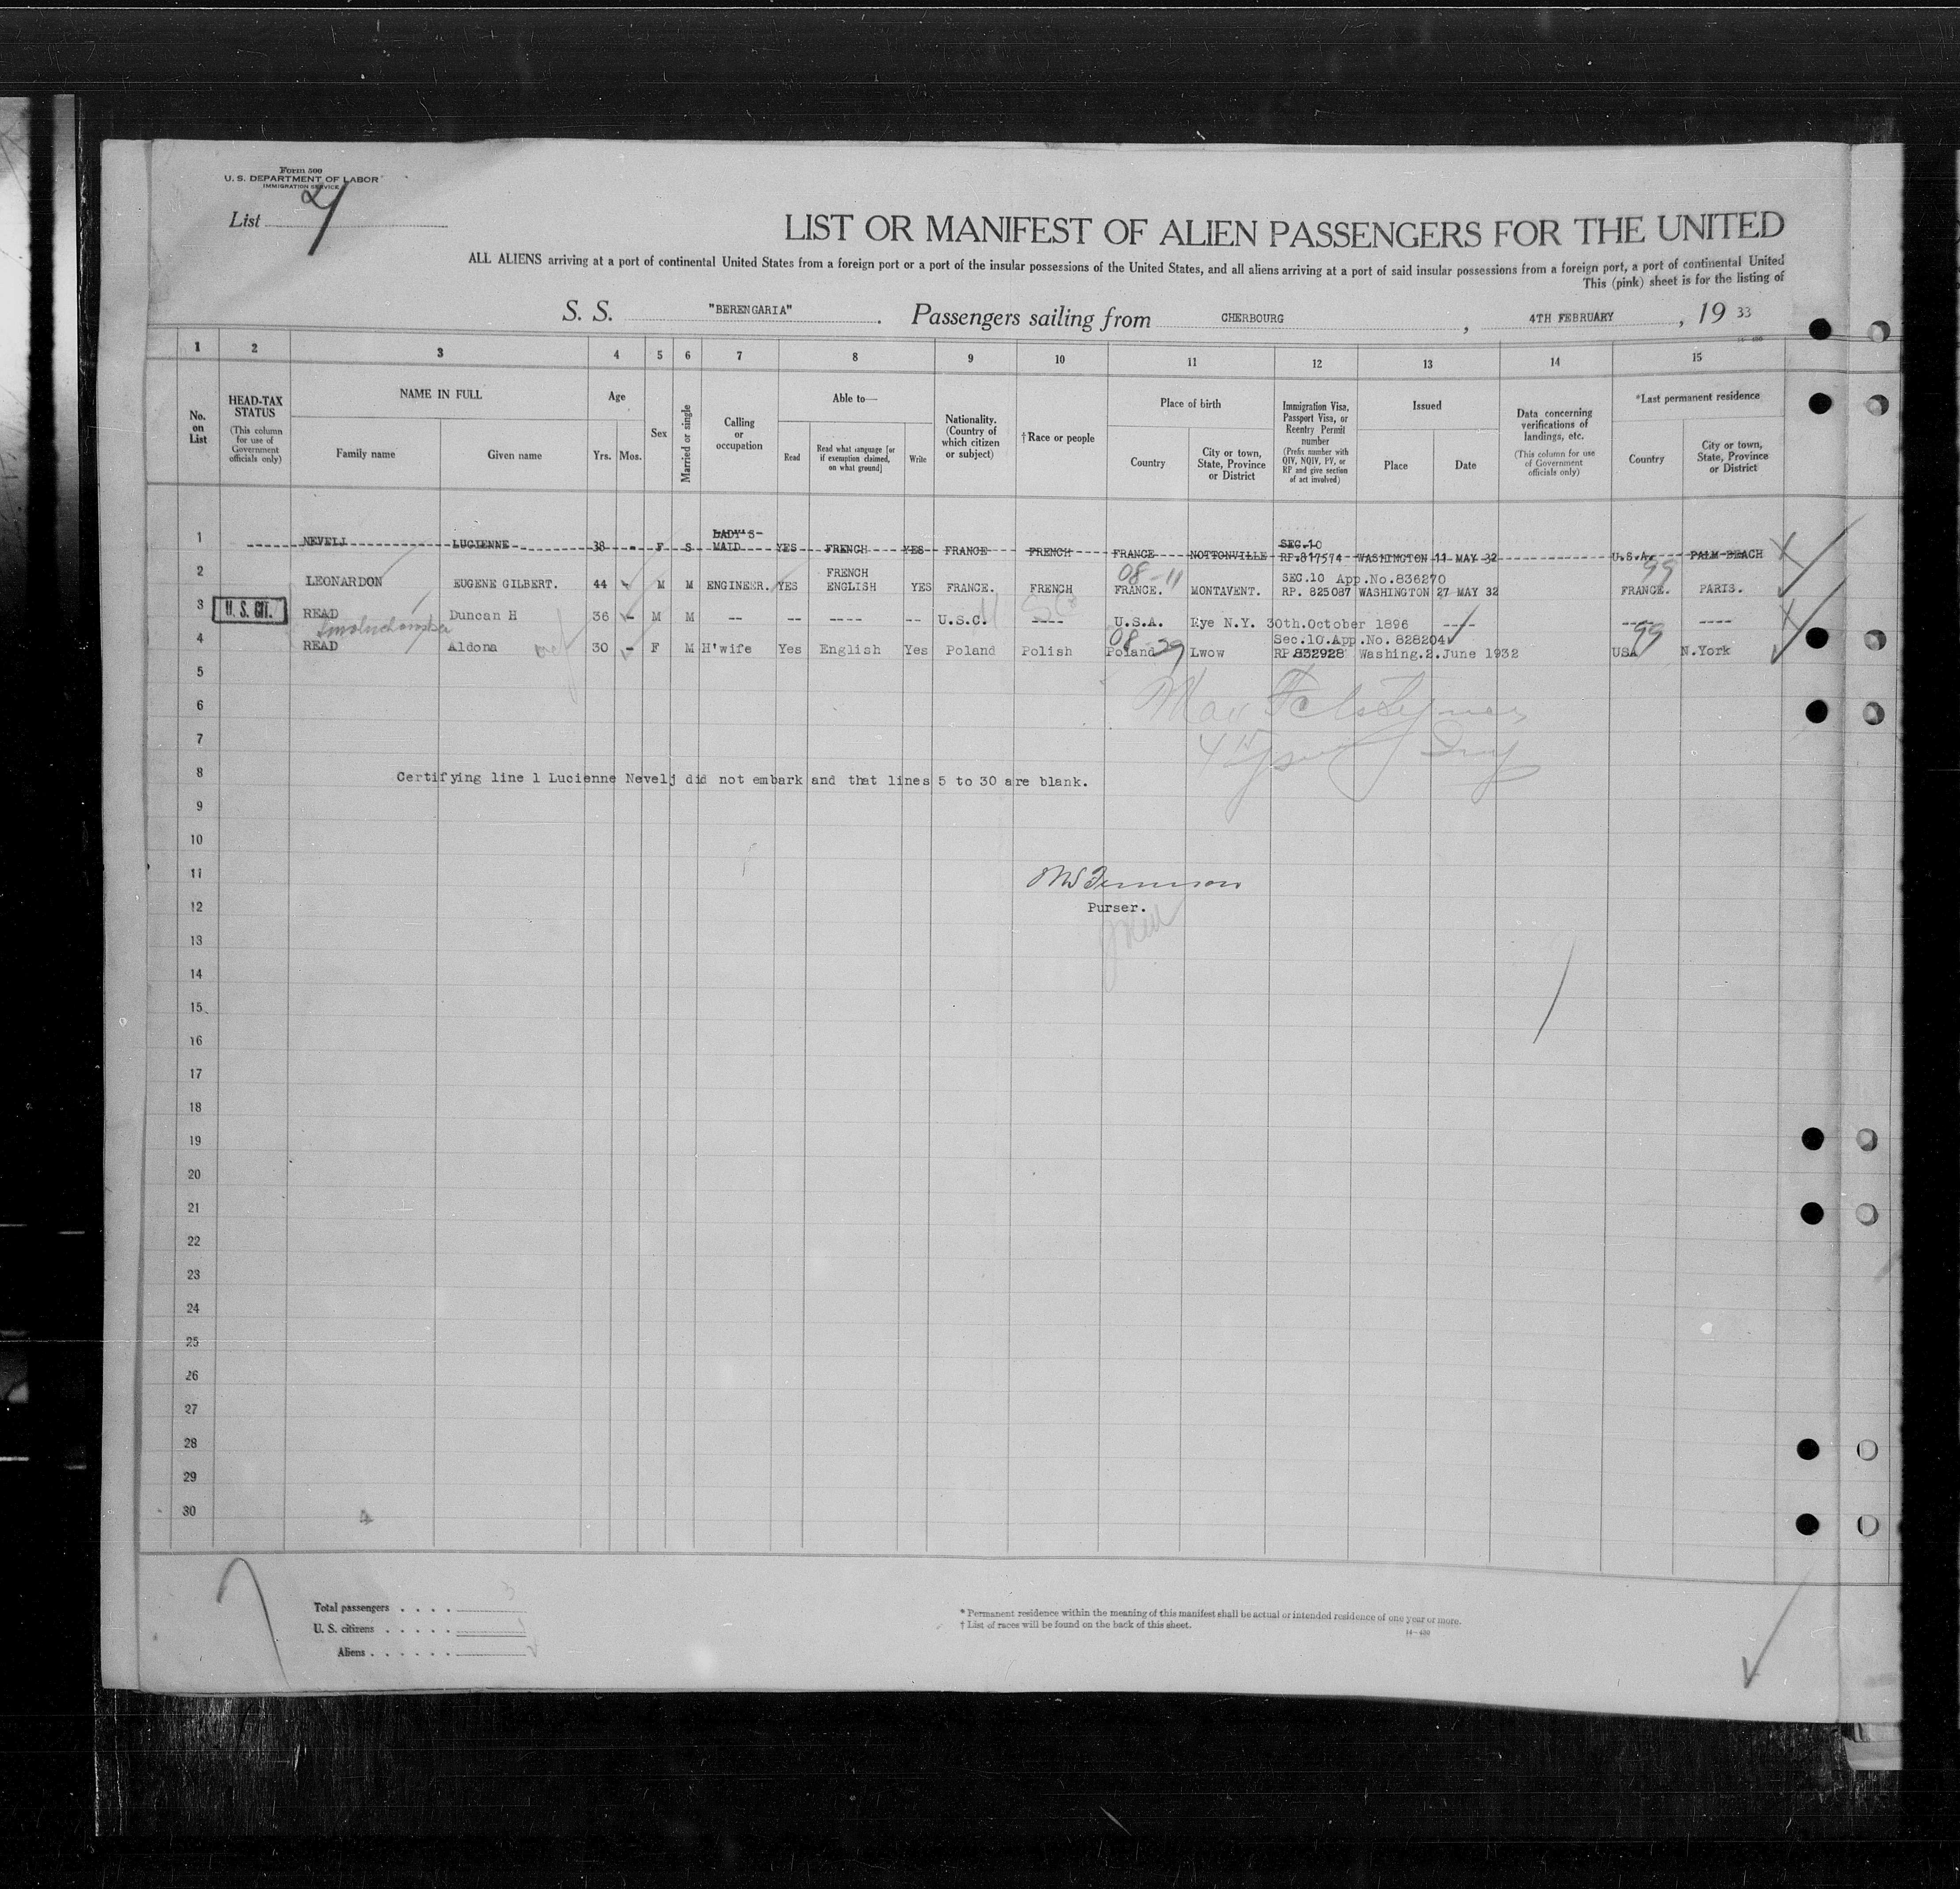 Form 500
U. S. DEPARTMENT OF LABOR
IMMIGRATION SERVICE
List
LIST OR MANIFEST OF ALIEN PASSENGERS FOR THE UNITED
ALL ALIENS arriving at a port of continental United States from a foreign port or a port of the insular possessions of the United States, and all aliens arriving at a port of said insular possessions from a foreign port, a port of continental United
This (pink) sheet is for the listing of
S. S. "BERENGARIA". Passengers sailing from CHERBOURG, 4TH FEBRUARY, 19 33
1 2 3 4 5 6 7 8 9 10 11 12 13 14 15
No. on List
HEAD-TAX STATUS (This column for use of Government officials only)
NAME IN FULL
Family name Given name
Age
Yrs. Mos.
Sex
Married or single
Calling or occupation
Able to—
Read Read what language [or if exemption claimed, on what ground] Write
Nationality. (Country of which citizen or subject)
†Race or people
Place of birth
Country City or town, State, Province or District
Immigration Visa, Passport Visa, or Reentry Permit number (Prefix number with QIV, NQIV, PV, or RP and give section of act involved)
Issued
Place Date
Data concerning verifications of landings, etc. (This column for use of Government officials only)
*Last permanent residence
Country City or town, State, Province or District
1 NEVELJ LUCIENNE 38 - F S LADY'S-MAID YES FRENCH YES FRANCE FRENCH FRANCE NOTTONVILLE SEC.10 RP.817574 WASHINGTON 11 MAY 32 U.S.A. PALM BEACH
2 LEONARDON EUGENE GILBERT. 44 - M M ENGINEER. YES FRENCH ENGLISH YES FRANCE. FRENCH 08-11 FRANCE. MONTAVENT. SEC.10 App.No.836270 RP. 825087 WASHINGTON 27 MAY 32 99 FRANCE. PARIS.
3 U. S. CIT. READ Duncan H 36 - M M -- -- ---- -- U.S.C. ---- U.S.A. Rye N.Y. 30th.October 1896 ---- ---- ----
4 READ Aldona 30 - F M H'wife Yes English Yes Poland Polish 08-29 Poland Lwow Sec.10.App.No. 828204 RP.832928 Washing.2.June 1932 99 USA N.York
5
6
7
8 Certifying line 1 Lucienne Nevelj did not embark and that lines 5 to 30 are blank.
9
10
11
12 Purser.
13
14
15
16
17
18
19
20
21
22
23
24
25
26
27
28
29
30
Total passengers . . . . 3
U. S. citizens . . . . . 1
Aliens . . . . . .
* Permanent residence within the meaning of this manifest shall be actual or intended residence of one year or more.
† List of races will be found on the back of this sheet.
14—430